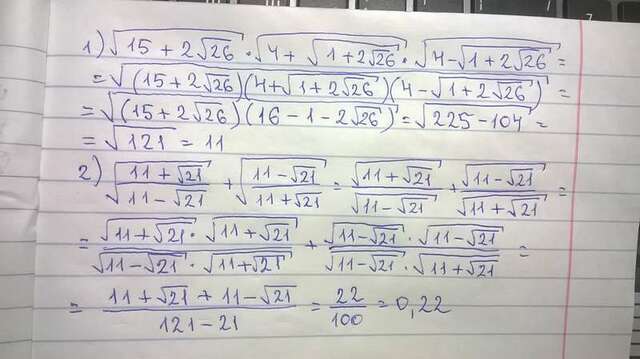 1) √(15 + 2√26) · √(4 + √(1 + 2√26)) · √(4 - √(1 + 2√26)) =
= √((15 + 2√26)(4 + √(1 + 2√26))(4 - √(1 + 2√26))) =
= √((15 + 2√26)(16 - 1 - 2√26)) = √(225 - 104) =
= √121 = 11
2) √((11 + √21)/(11 - √21)) + √((11 - √21)/(11 + √21)) = √(11 + √21)/√(11 - √21) + √(11 - √21)/√(11 + √21) =
= (√(11 + √21) · √(11 + √21))/(√(11 - √21) · √(11 + √21)) + (√(11 - √21) · √(11 - √21))/(√(11 - √21) · √(11 + √21)) =
= (11 + √21 + 11 - √21)/(121 - 21) = 22/100 = 0,22